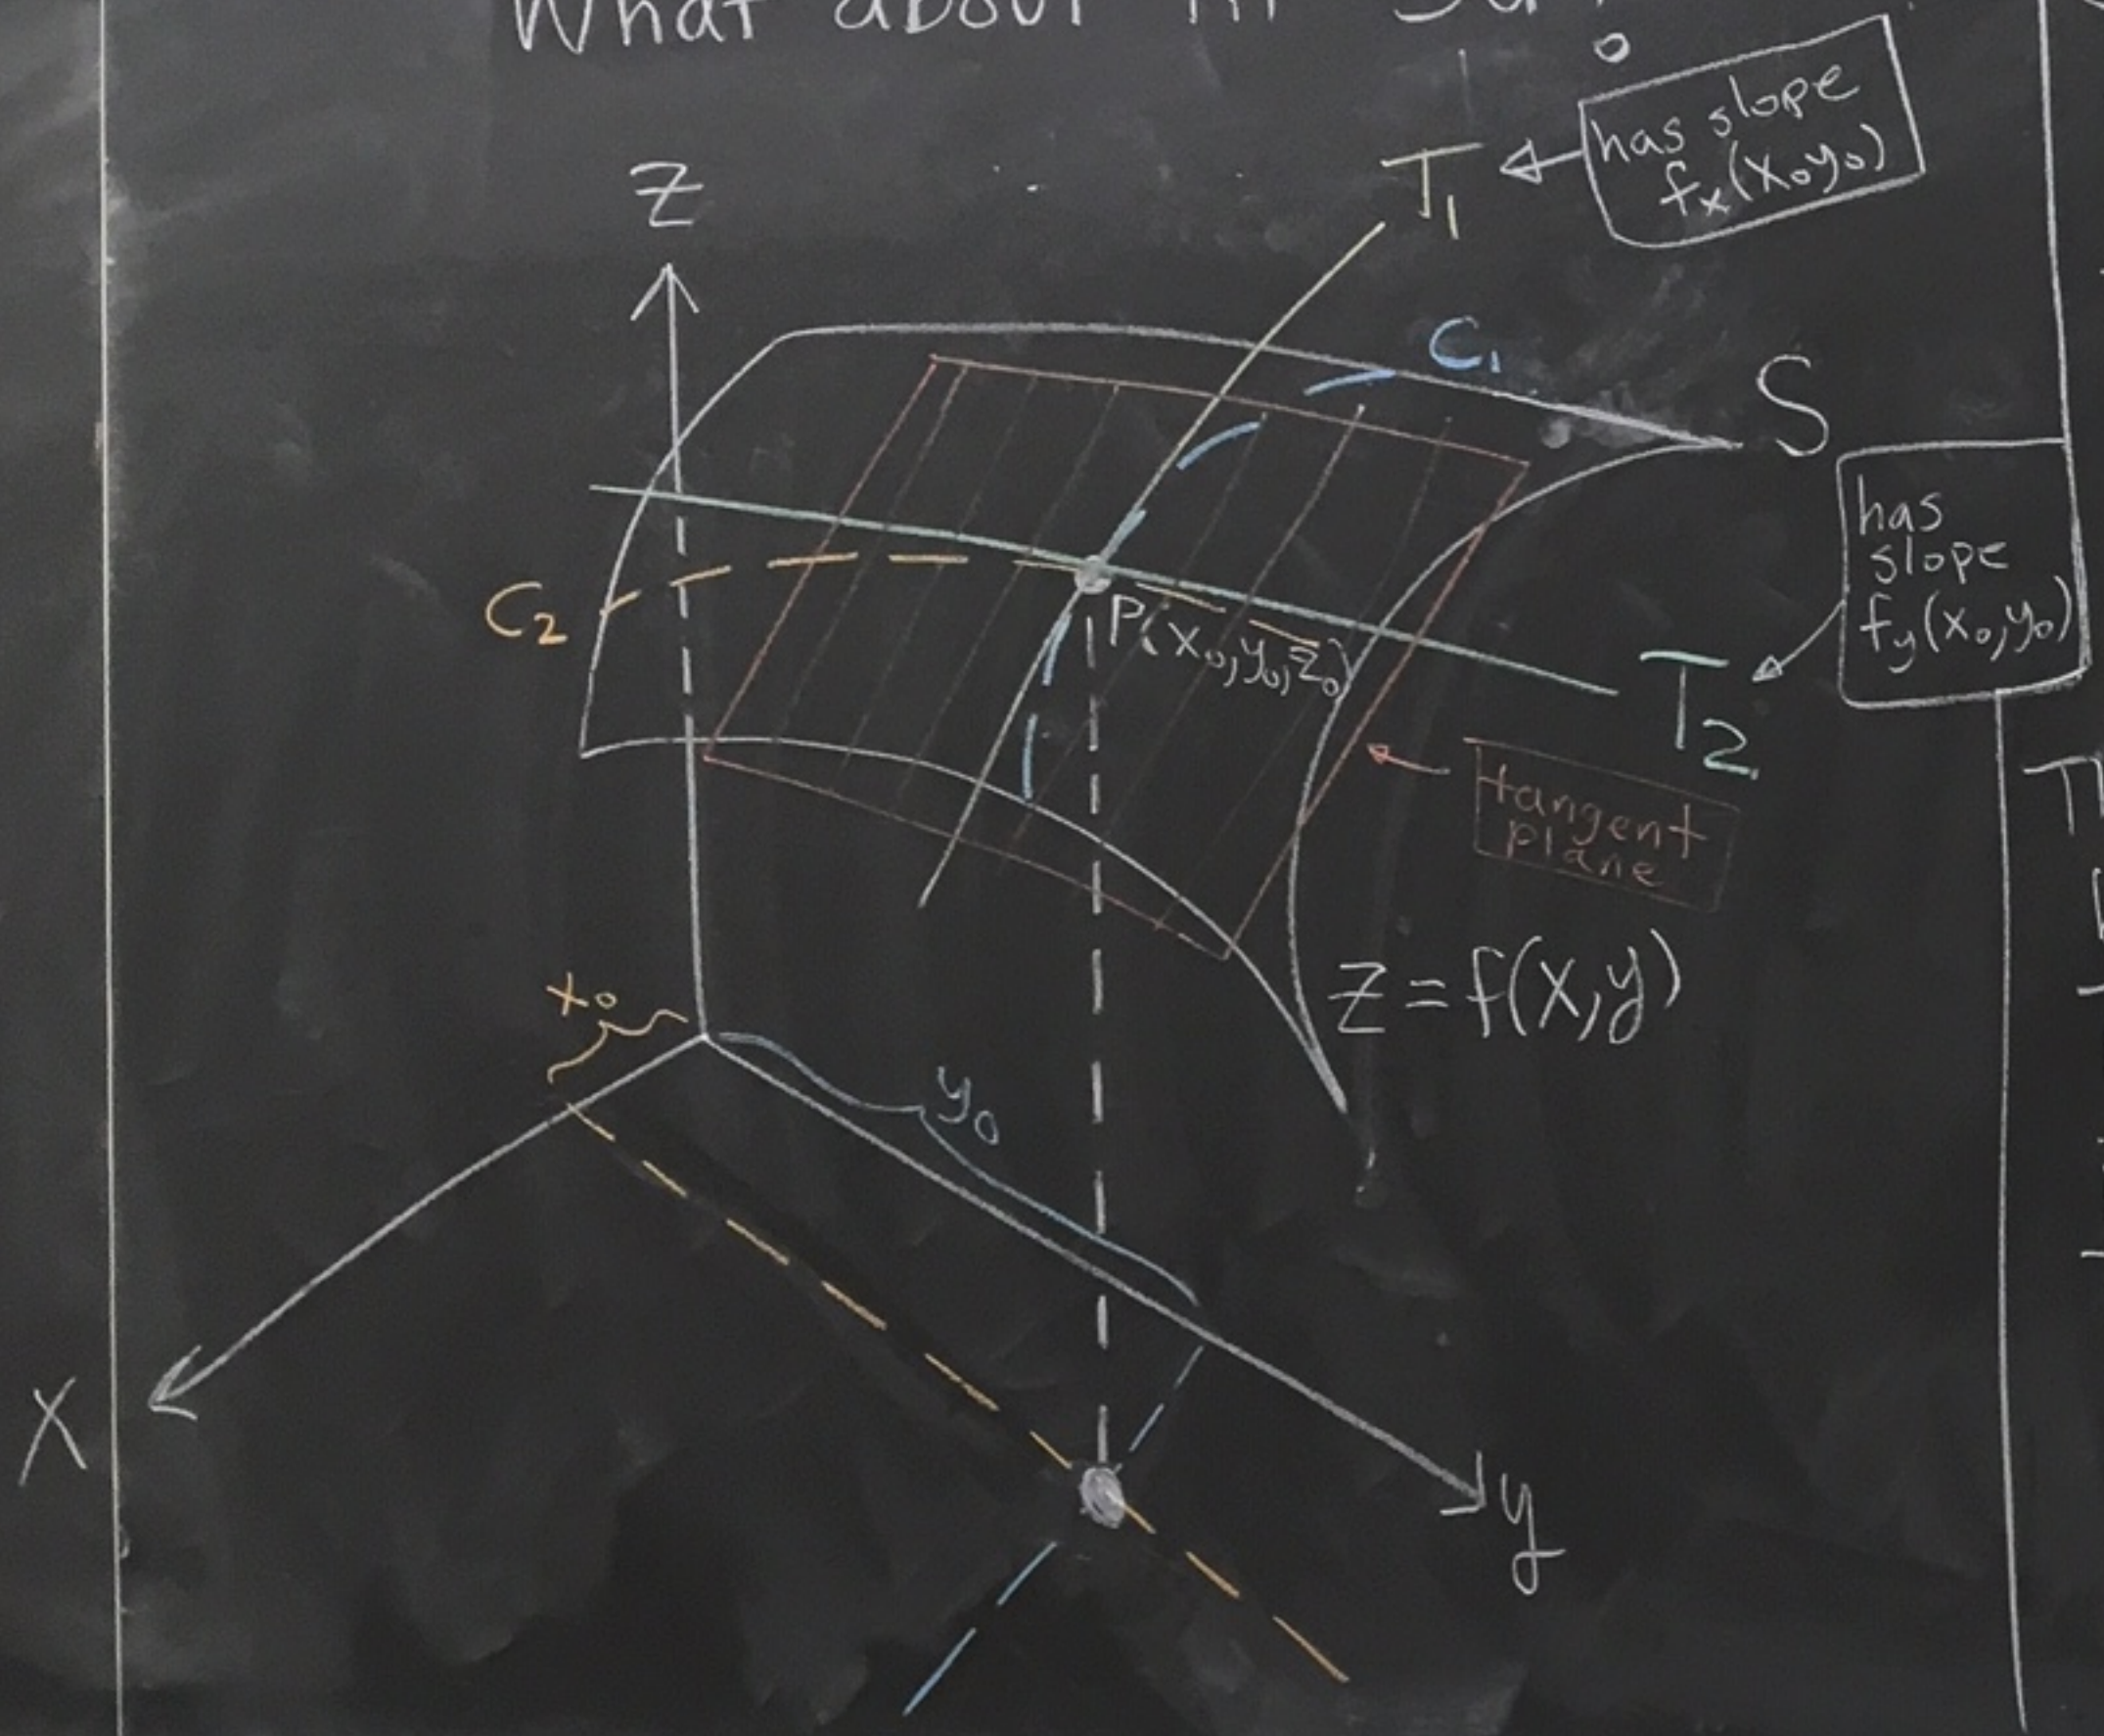 What about in
T₁
has slope
fₓ(x₀y₀)
Z
C₁
S
has
slope
f_y(x₀,y₀)
C₂
P(x₀,y₀,z₀)
T₂
tangent
plane
z=f(x,y)
x₀
y₀
X
y